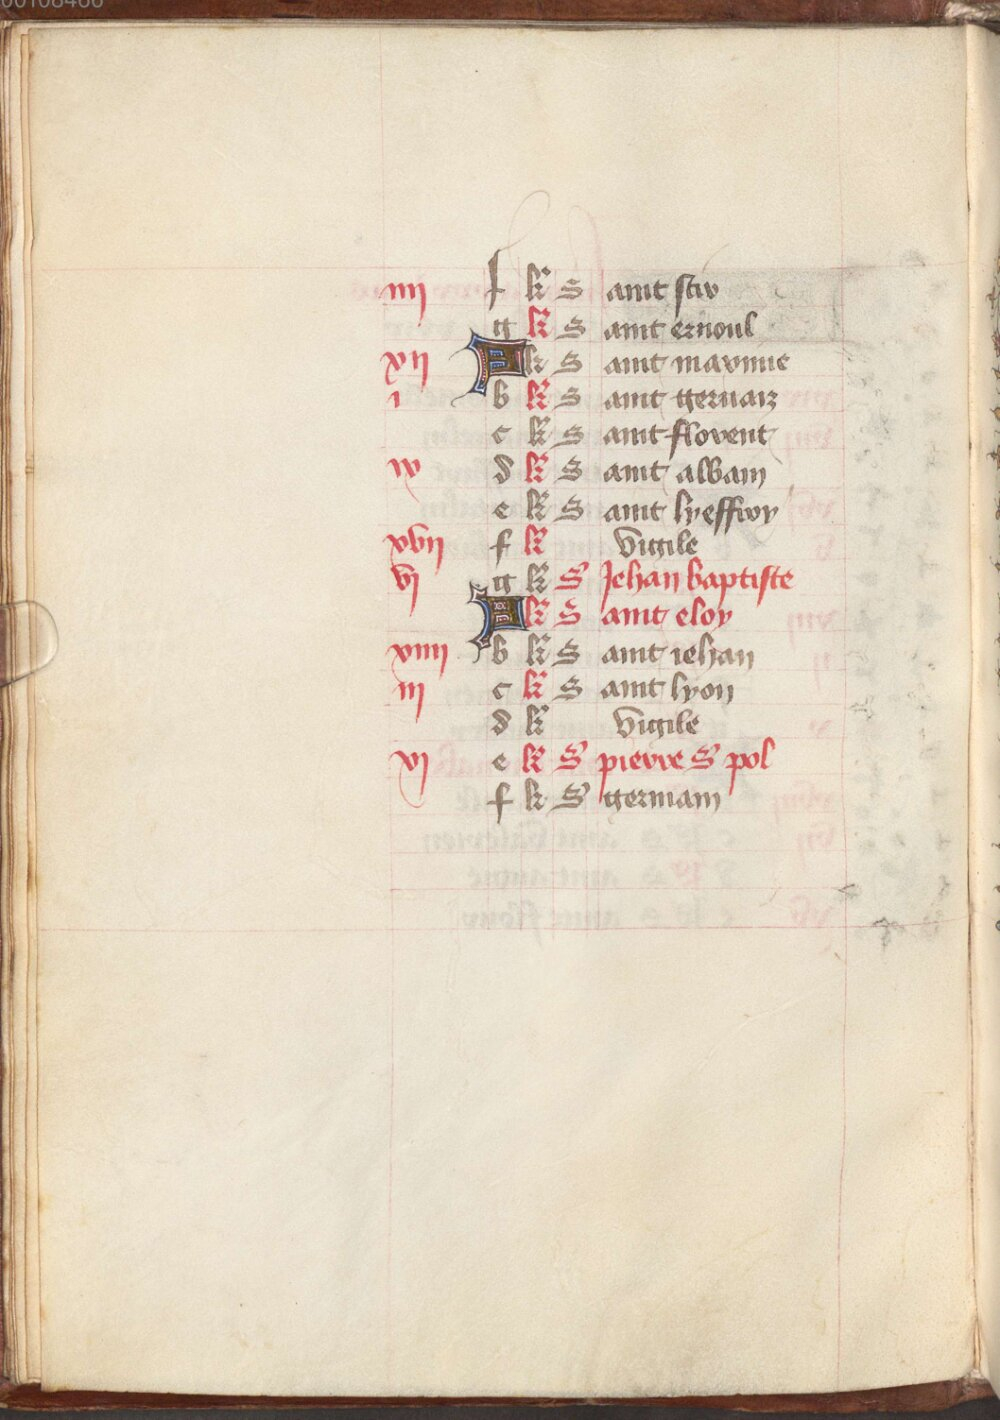 00108466
iiij f k S aint
g k S aint ernoul
xij A k S aint maxime
i b k S aint geruaiz
c k S aint florent
ix d k S aint albain
e k S aint lyeffroy
xvij f k Vigile
vi g k S Jehan baptiste
A k S aint eloy
xiiij b k S aint iehan
iij c k S aint lyon
d k Vigile
xi e k S pierre S pol
f k S germain